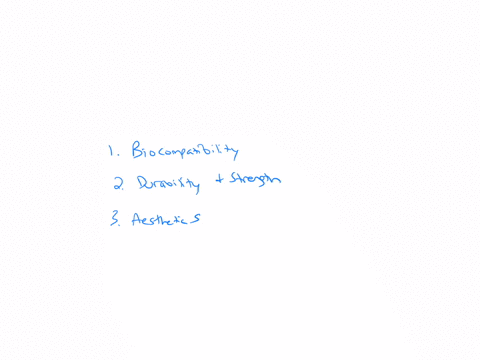 1. Biocompatibility
2. Durability + Strength
3. Aesthetics